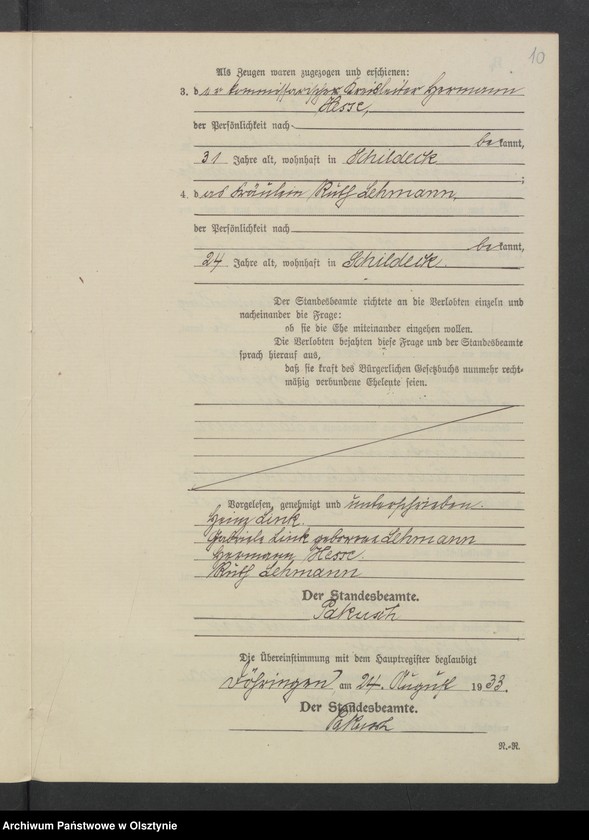 10
Als Zeugen waren zugezogen und erschienen:
3. der kommissarischer Kreisleiter Hermann
Hesse,
der Persönlichkeit nach
bekannt,
31 Jahre alt, wohnhaft in Schildeck
;
4. das Fräulein Ruth Lehmann,
der Persönlichkeit nach
bekannt,
24 Jahre alt, wohnhaft in Schildeck.
Der Standesbeamte richtete an die Verlobten einzeln und
nacheinander die Frage:
ob sie die Ehe miteinander eingehen wollen.
Die Verlobten bejahten diese Frage und der Standesbeamte
sprach hierauf aus,
daß sie kraft des Bürgerlichen Gesetzbuchs nunmehr recht-
mäßig verbundene Eheleute seien.
Vorgelesen, genehmigt und unterschrieben.
Heinz Link.
Gabriele Link geborene Lehmann
Hermann Hesse.
Ruth Lehmann
Der Standesbeamte.
Pakusch
Die Übereinstimmung mit dem Hauptregister beglaubigt
Döhringen, am 24. August 1933.
Der Standesbeamte.
Pakusch
N.-R.
Archiwum Państwowe w Olsztynie